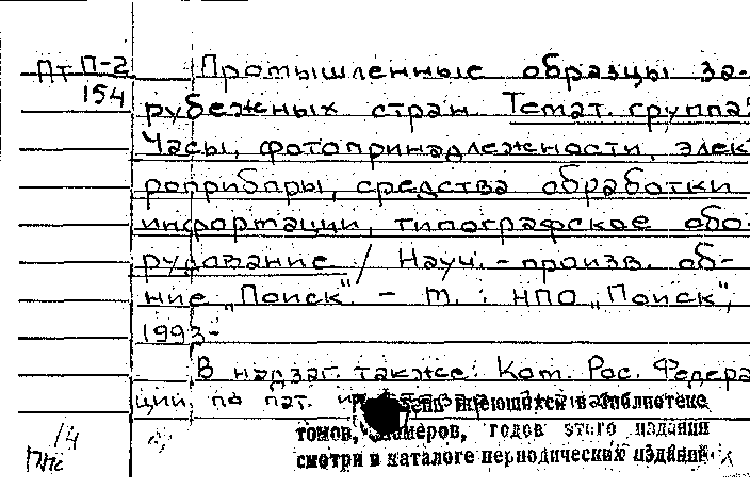 Пт П-2
154
Промышленные образцы за-
рубежных стран. Темат. группа"
Часы, фотопринадлежности, элект
роприборы, средства обработки
информации, типографское обо-
рудование / Науч.-произв. об-
ние „Поиск". - М. : НПО „Поиск",
1993-
В надзаг. также: Ком. Рос. Федера
ции по пат. и
имеющихся в библиотеке
томов, номеров, годов этого издания
смотри в каталоге периодических изданий